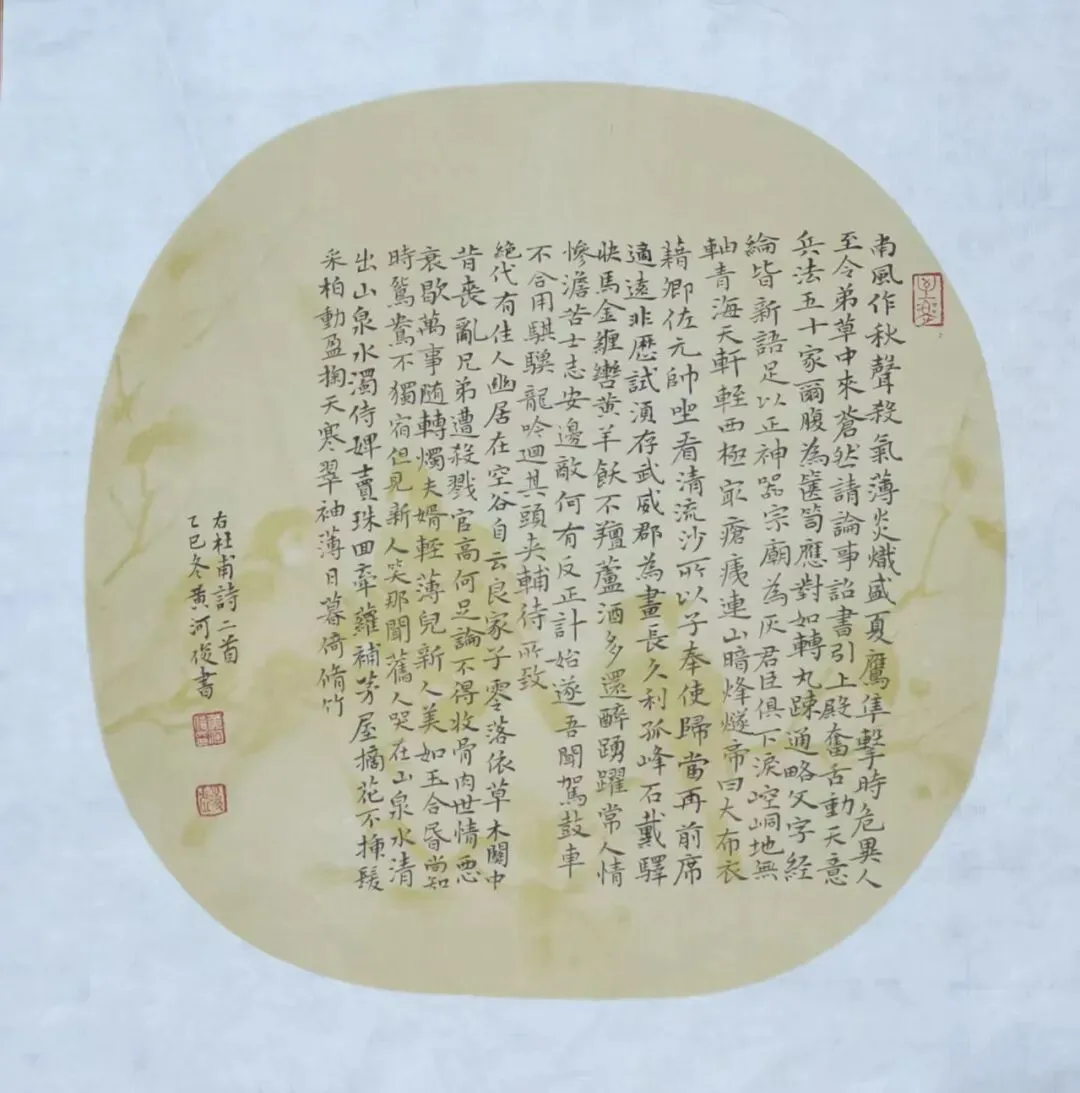 南風作秋聲殺氣薄炎熾盛夏鷹隼擊時危異人
至令弟草中來蒼然請論事詔書引上殿奮舌動天意
兵法五十家爾腹為篋笥應對如轉丸疎通略文字経
綸皆新語足以正神器宗廟為灰君臣俱下淚崆峒地無
軸青海天軒輊西極冣瘡痍連山暗烽燧帝曰大布衣
藉卿佐元帥坐看清流沙所以子奉使歸當再前席
適遠非歷試須存武威郡為畫長久利孤峰石戴驛
快馬金纏轡黄羊飫不羶蘆酒多還醉踴躍常人情
慘澹苦士志安邊敵何有反正計始遂吾聞駕鼓車
不合用騏驥龍吟迴其頭夾輔待所致
絶代有佳人幽居在空谷自云良家子零落依草木關中
昔喪亂兄弟遭殺戮官高何足論不得收骨肉世情惡
衰歇萬事随轉燭夫婿輕薄兒新人美如玉合昏尚知
時鴛鴦不獨宿但見新人笑那聞舊人哭在山泉水清
出山泉水濁侍婢賣珠回牽蘿補茅屋摘花不插髮
采柏動盈掬天寒翠袖薄日暮倚脩竹
右杜甫詩二首
乙巳冬黄河俊書